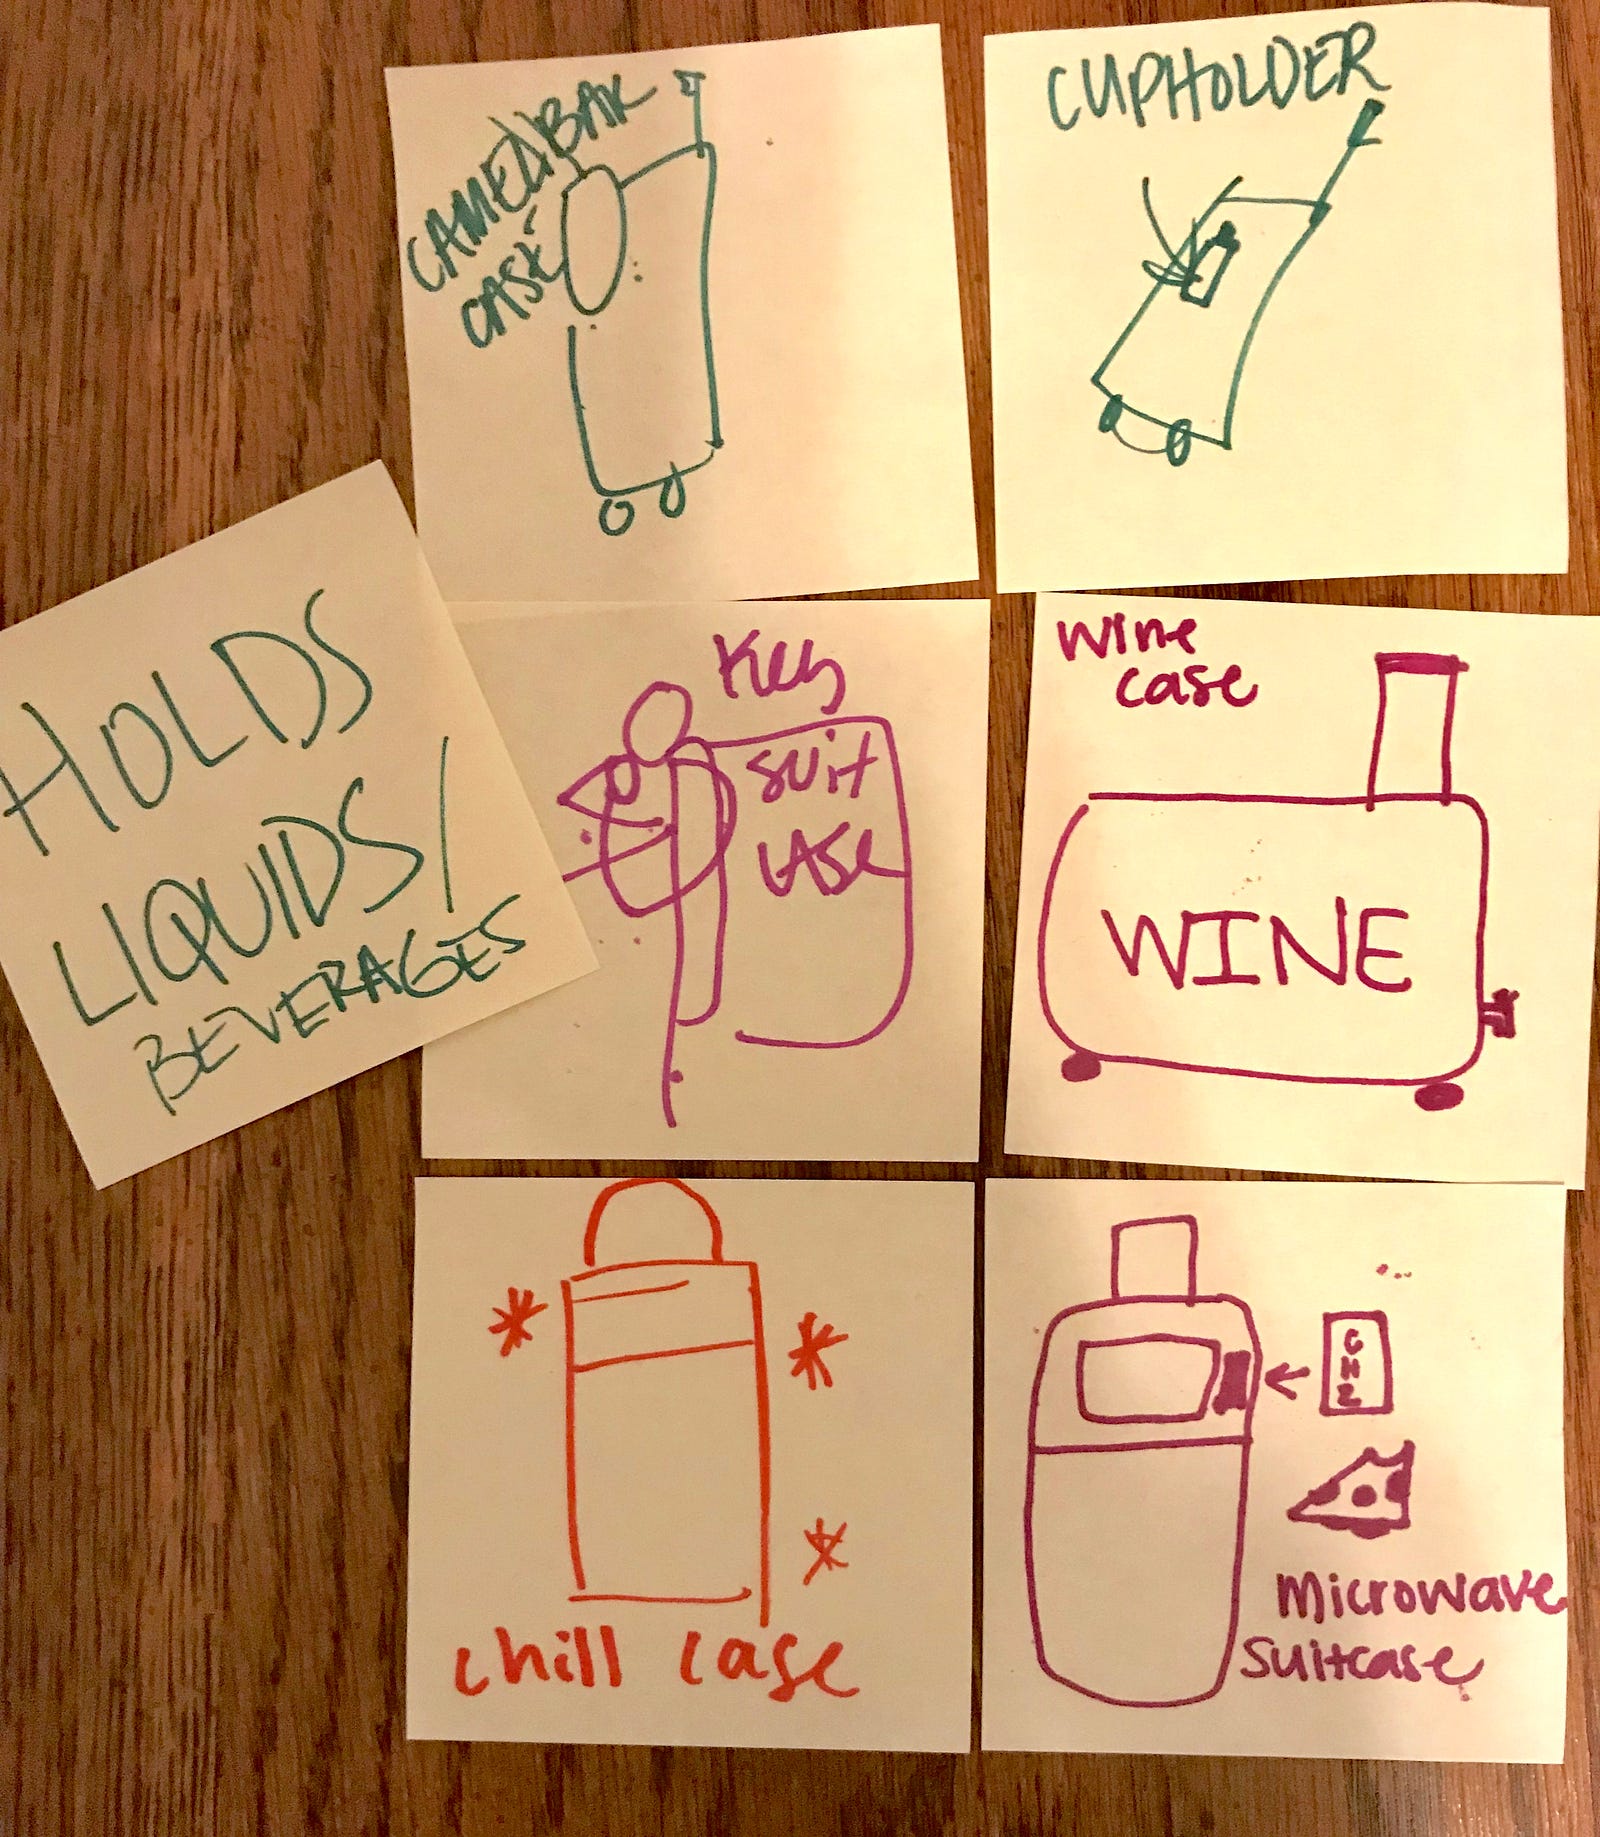 HOLDS
LIQUIDS/
BEVERAGES
CAMELBAK
CASE
CUPHOLDER
Keg
suit
case
wine
case
WINE
chill case
G
H
Z
microwave
suitcase